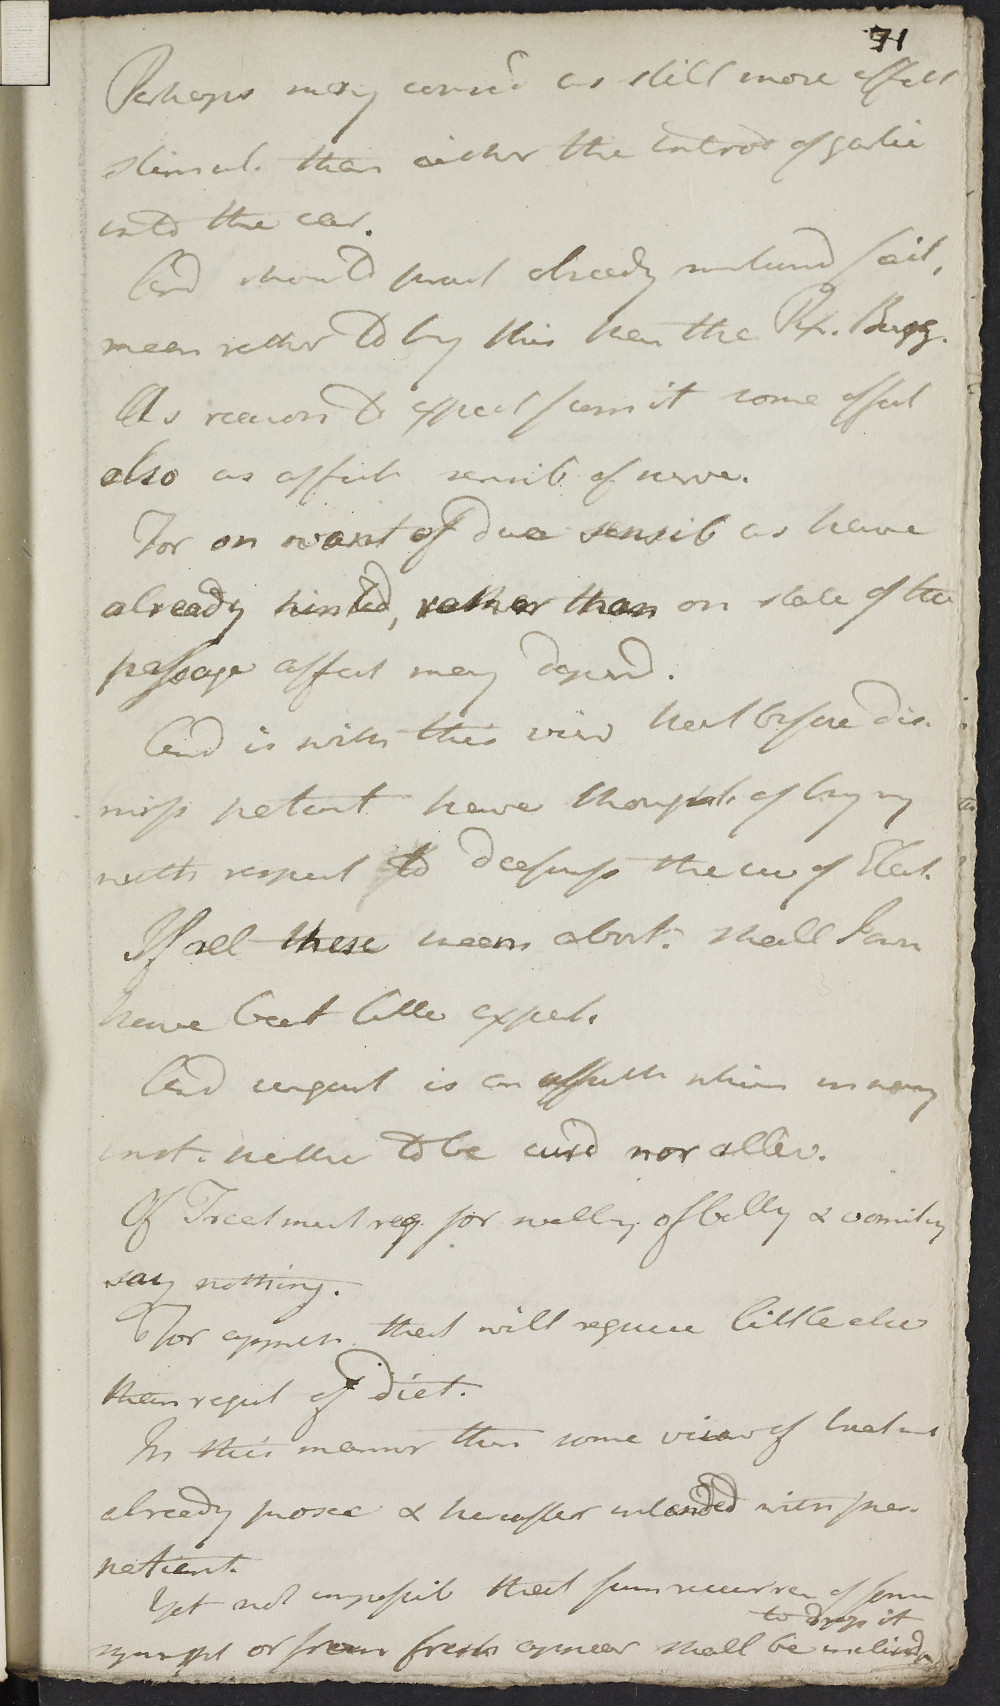 71
Perhaps may consid as still more effect
stimul. than either the introd of garlic
into the ear.
And should pract already mentiond fail,
mean rather to try this than the Pip. Burg.
As reason to expect from it some effect
also as affect sensib of nerve.
For on want of due sensib as have
already hinted, rather than on state of the
passage affect may depend.
And is with this view that before dis
miss patient have thought of trying
with respect to deafness the use of Elect.
If all these means abort. shall I own
have but little expect.
And is an affectn which in many
inst. neither to be curd nor allev.
Of Treatment req for swelling of belly & vomiting
say nothing.
For apprehn that will require little else
than regul of diet.
In this manner then some view of treatment
already prosec & hereafter intended with pres.
patient.
Yet not impossib that from recurren of some
to drop it
sympt or from fresh appear shall be inclind